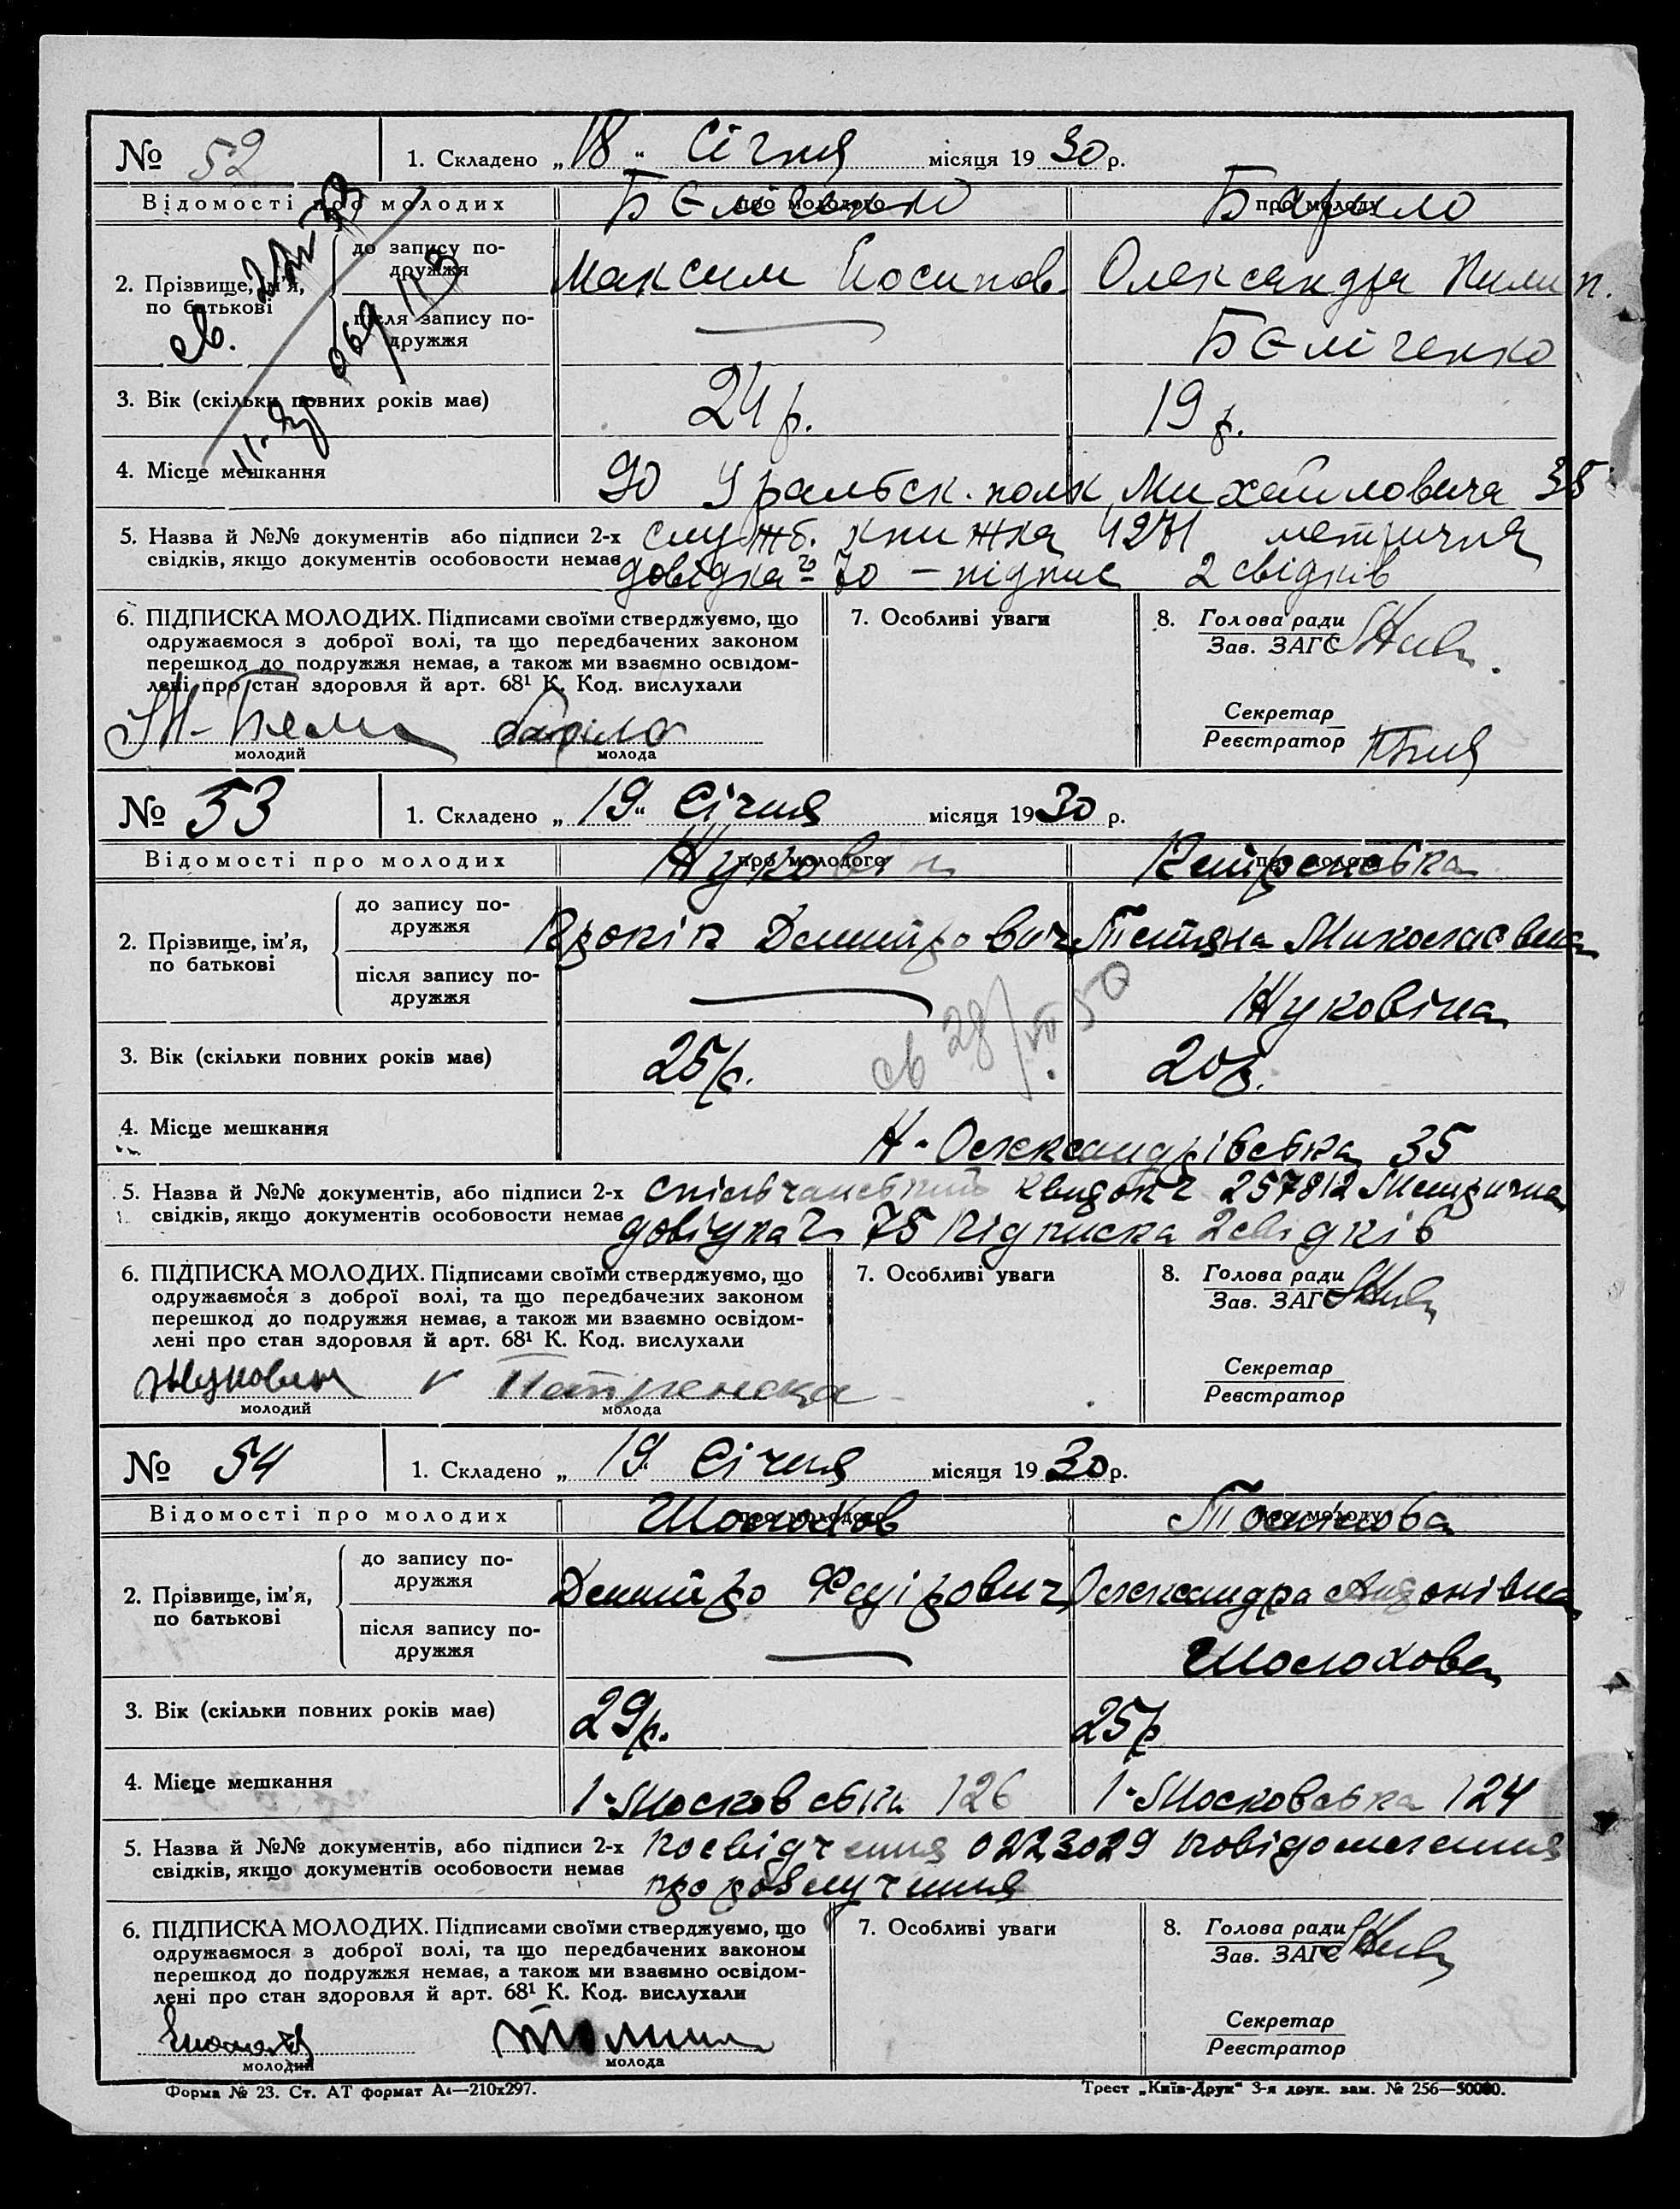 № 52 1. Складено „18“ Січня місяця 1930 р.
Відомості про молодих про молодого про молоду
Бєліченко Барило
2. Прізвище, ім’я, по батькові
до запису подружжя Максим Йосипов. Олександра Пилип.
після запису подружжя — Бєліченко
3. Вік (скільки повних років має) 24 р. 19 р.
4. Місце мешкання 90 Уральск. полк Михайловича 35
5. Назва й №№ документів або підписи 2-х служб. книжка 4271 метрична
свідків, якщо документів особовости немає довідка № 70 – підпис 2 свідків
6. ПІДПИСКА МОЛОДИХ. Підписами своїми стверджуємо, що
одружаємося з доброї волі, та що передбачених законом
перешкод до подружжя немає, а також ми взаємно освідом-
лені про стан здоров'я й арт. 68¹ К. Код. вислухали
7. Особливі уваги
8. Голова ради
Зав. ЗАГС
Секретар
Реєстратор
барило
молодий молода
№ 53 1. Складено „19“ Січня місяця 1930 р.
Відомості про молодих про молодого про молоду
Жуковін Петренська
2. Прізвище, ім’я, по батькові
до запису подружжя Прокіп Дмитрович Тетяна Миколаєвна
після запису подружжя — Жуковіна
св 28/VII 50
3. Вік (скільки повних років має) 25 р. 20 р.
4. Місце мешкання Н-Олександрівська 35
5. Назва й №№ документів, або підписи 2-х спілчанський квиток № 257812 Метрична
свідків, якщо документів особовости немає довідка № 75 підписка 2 свідків
6. ПІДПИСКА МОЛОДИХ. Підписами своїми стверджуємо, що
одружаємося з доброї волі, та що передбачених законом
перешкод до подружжя немає, а також ми взаємно освідом-
лені про стан здоровля й арт. 68¹ К. Код. вислухали
7. Особливі уваги
8. Голова ради
Зав. ЗАГС
Секретар
Реєстратор
Жуковин Петренска
молодий молода
№ 54 1. Складено „19“ Січня місяця 1930 р.
Відомості про молодих про молодого про молоду
Шолохов Толмачова
2. Прізвище, ім’я, по батькові
до запису подружжя Дмитро Федірович Олександра Андонівна
після запису подружжя — Шолохова
3. Вік (скільки повних років має) 29 р. 25 р
4. Місце мешкання 1-Московська 126 1-Московська 124
5. Назва й №№ документів, або підписи 2-х посвідчення 0223029 повідомлення
свідків, якщо документів особовости немає про розлучення
6. ПІДПИСКА МОЛОДИХ. Підписами своїми стверджуємо, що
одружаємося з доброї волі, та що передбачених законом
перешкод до подружжя немає, а також ми взаємно освідом-
лені про стан здоровля й арт. 68¹ К. Код. вислухали
7. Особливі уваги
8. Голова ради
Зав. ЗАГС
Секретар
Реєстратор
молодий молода
Форма № 23. Ст. АТ формат А₄—210х297. Трест „Київ-Друк“ 3-я друк. зам. № 256—50000.